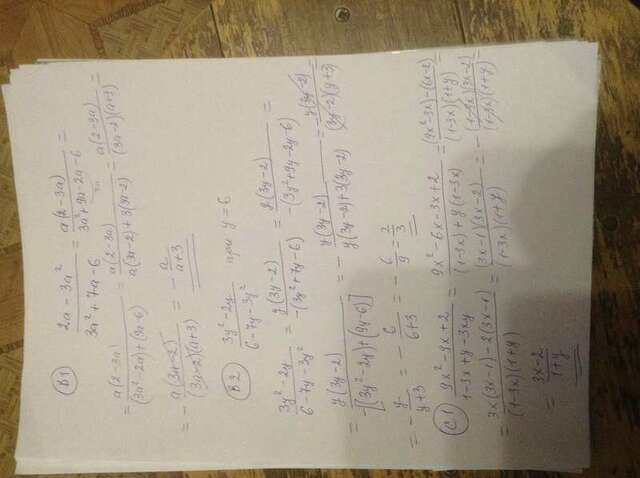 В1) (2a - 3a²)/(3a² + 7a - 6) = a(2 - 3a)/(3a² + 9a - 2a - 6) =
= a(2 - 3a)/((3a² - 2a) + (9a - 6)) = a(2 - 3a)/(a(3a - 2) + 3(3a - 2)) = a(2 - 3a)/((3a - 2)(a + 3)) =
= - a(3a - 2)/((3a - 2)(a + 3)) = - a/(a + 3)
В2) (3y² - 2y)/(6 - 7y - 3y²) при y = 6
(3y² - 2y)/(6 - 7y - 3y²) = y(3y - 2)/(-(3y² + 7y - 6)) = y(3y - 2)/(-(3y² + 9y - 2y - 6)) =
= y(3y - 2)/(-[(3y² - 2y) + (9y - 6)]) = - y(3y - 2)/(y(3y - 2) + 3(3y - 2)) = y(3y - 2)/((3y - 2)(y + 3))
= - y/(y + 3) = - 6/(6 + 3) = - 6/9 = 2/3
С1) (9x² - 9x + 2)/(1 - 3x + y - 3xy) = (9x² - 6x - 3x + 2)/((1 - 3x) + y(1 - 3x)) = ((9x² - 3x) - (6x - 2))/((1 - 3x)(1 + y)) =
= (3x(3x - 1) - 2(3x - 1))/((1 - 3x)(1 + y)) = (3x - 1)(3x - 2)/((1 - 3x)(1 + y)) = - (1 - 3x)(3x - 2)/((1 - 3x)(1 + y)) =
= (3x - 2)/(1 + y)